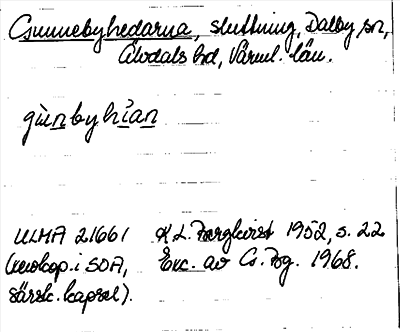 Gunnebyhedarna, sluttning, Dalby sn,
Älvdals hd, Värml. län.
gùnbyhìan
ULMA 21661 K.L. Bergkvist 1952, s. 22
(xerokop. i SOA, Exc. av G. Bg. 1968.
särsk. kapsel).